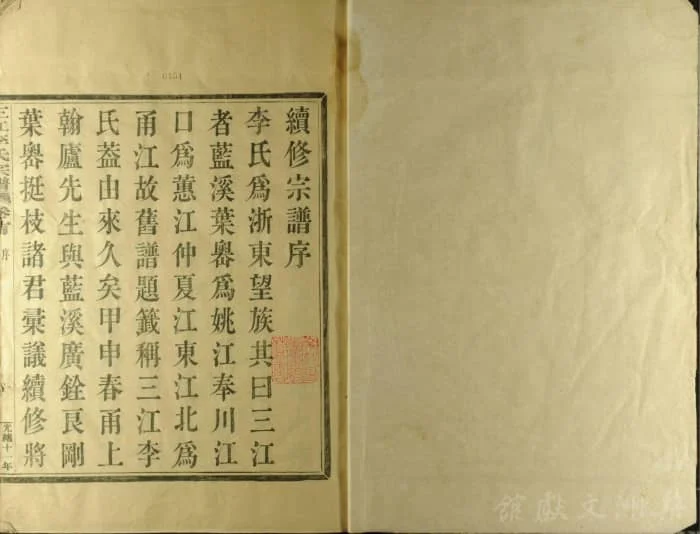 續修宗譜序
李氏爲浙東望族其曰三江
者藍溪葉嶴爲姚江奉川江
口爲蕙江仲夏江東江北爲
甬江故舊譜題籤稱三江李
氏葢由來久矣甲申春甬上
翰廬先生與藍溪廣銓艮剛
葉嶴挺枝諸君彚議續修將
三江李氏宗譜 卷首 序
光緒十一年
0151
文獻館